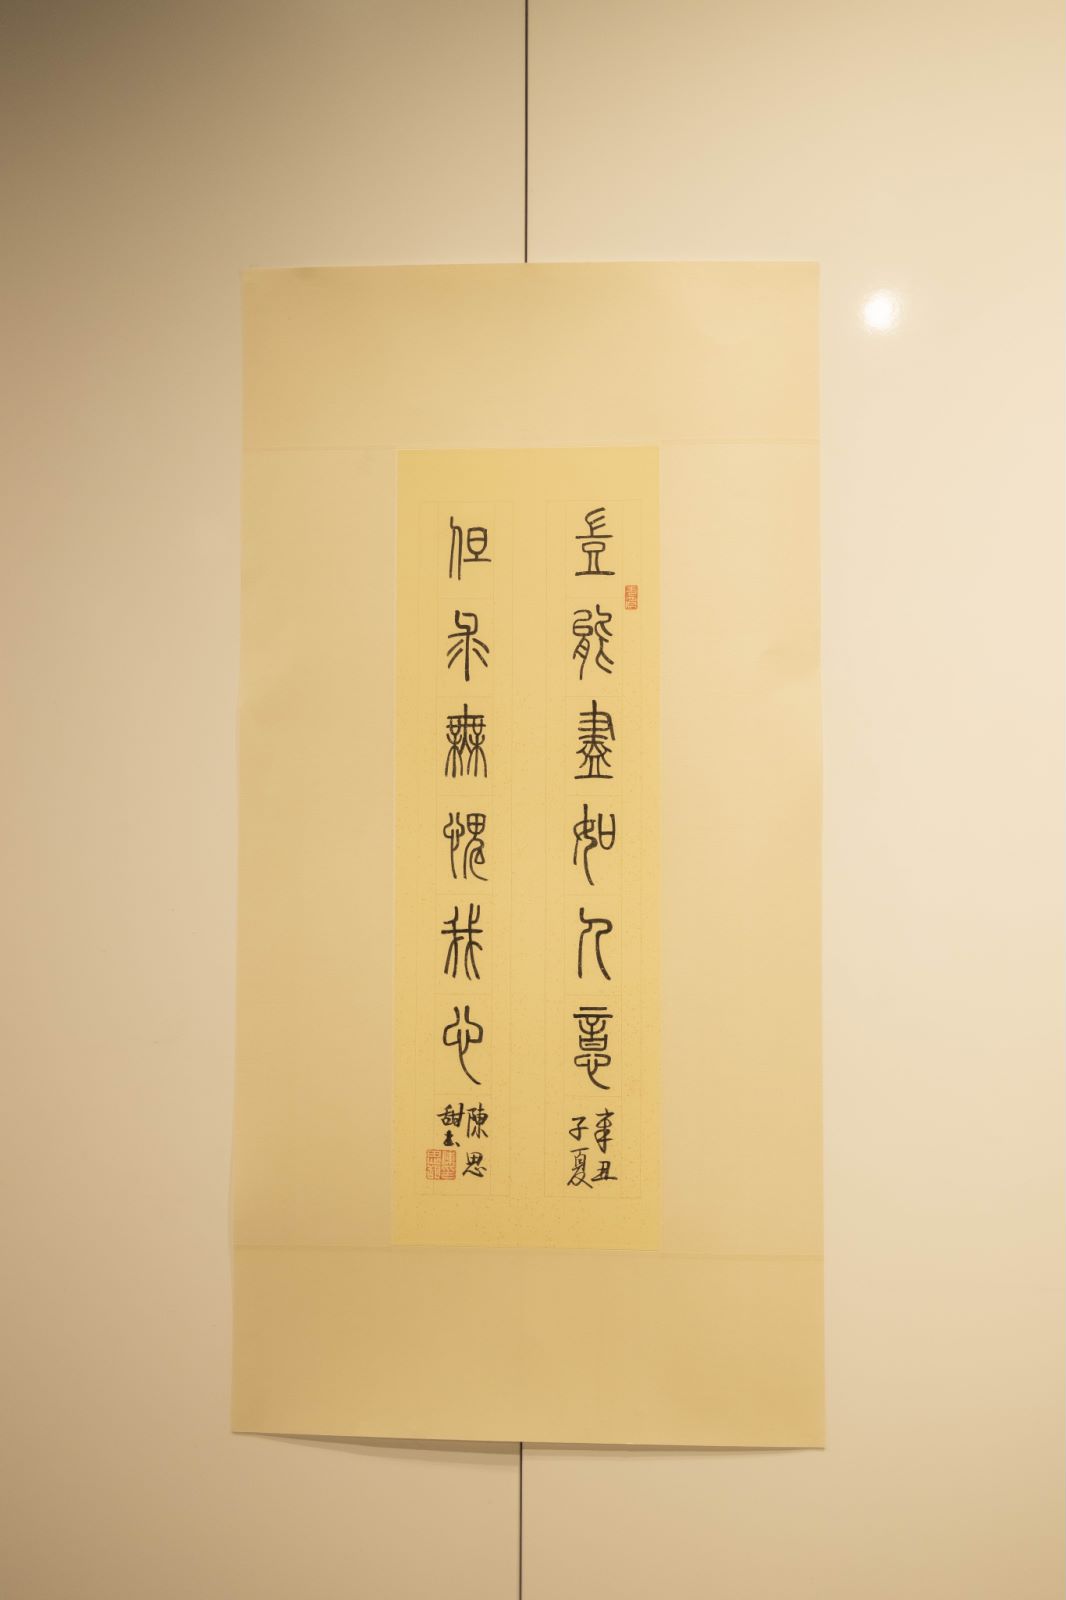 豈能盡如人意
辛丑
子夏
但求無愧我心
陳思
甜書